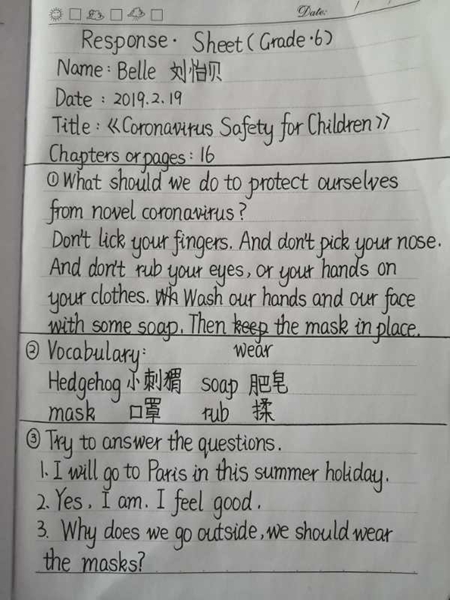 Date:
Response. Sheet (Grade.6)
Name: Belle 刘怡贝
Date: 2019.2.19
Title: 《Coronavirus Safety for Children》
Chapters or pages: 16
① What should we do to protect ourselves
from novel coronavirus?
Don't lick your fingers. And don't pick your nose.
And don't rub your eyes, or your hands on
your clothes. Wh Wash our hands and our face
with some soap. Then keep the mask in place.
② Vocabulary: wear
Hedgehog 小刺猬 soap 肥皂
mask 口罩 rub 揉
③ Try to answer the questions.
1. I will go to Paris in this summer holiday.
2. Yes, I am. I feel good.
3. Why does we go outside, we should wear
the masks?